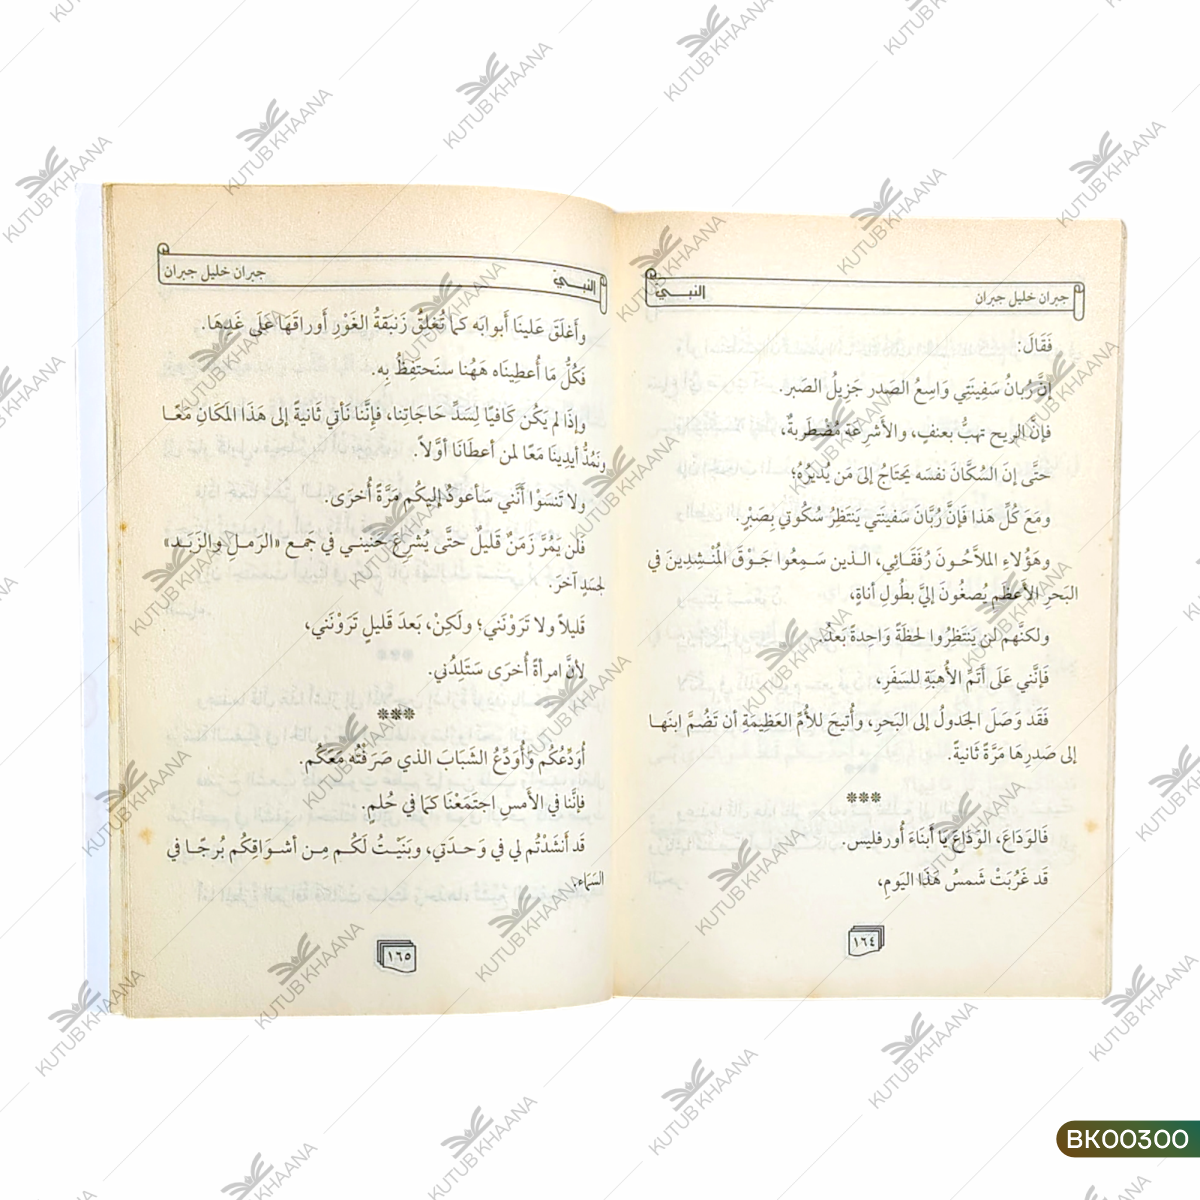 جبران خليل جبران
النبـــي
فَقَالَ:
إنَّ رُبانُ سَفِينَتِي وَاسِعُ الصَدرِ جَزِيلُ الصَبرِ.
فإنَّ الرِيح تهبُّ بعنفٍ، والأَشرعَة مُضْطَرِبةٌ،
حتَّى إنَ السُكَّانَ نفسَه يَحتَاجُ إلىَ مَن يُديْرُهُ؛
ومَعَ كُلِّ هَذا فَإنَّ رُبَّانَ سَفينَتي يَنتَظرُ سُكُوتي بِصَبْرٍ.
وهَؤُلاءِ الملاَّحُـونَ رُفَقَـائِي، الـذين سَـمِعُوا جَـوْقَ المُنْـشِدِينَ في
البَحرِ الأَعظَمِ يُصغُونَ إليَّ بطُولِ أناةٍ،
ولكنَّهم لن يَنتَظِرُوا لحظَةً وَاحِدةً بَعدُ.
فَإنَّني عَلَى أَتَمِّ الأُهبَةِ للسَفَرِ،
فَقَد وَصَلَ الجَدولُ إلى البَحرِ، وأُتيحَ للأُمِّ العَظِيمَةِ أن تَضُمَّ ابنَهـا
إلى صَدرِهَا مَرَّةً ثَانيةً.
***
فَالوَدَاعَ، الوَدَاعَ يَا أَبنَاءَ أُورفليس.
قَد غَرُبَتْ شَمسُ هَذَا اليَومِ،
١٦٤
النبـــي
جبران خليل جبران
وأَغلَقَ عَلينَا أَبوابَه كمَا تُغلِقُ زَنبَقةُ الغَوْرِ أَوراقَهَا عَلَى غَدِهَا.
فَكُلُّ مَا أُعطِينَاه هَهُنا سنَحتَفِظُ بِه.
وإذَا لم يَكُن كَافيًا لِسَدِّ حَاجَاتِنا، فإنَّنا نَأتي ثَانيةً إلى هَذَا المَكَانِ مَعًـا
ونَمُدُّ أيدِينَا مَعًا لمن أَعطَانَا أوَّلاً.
ولا تَنسَوْا أنَّني سَأعودُ إليكُم مَرَّةً أُخرَى.
فلَن يَمُرَّ زَمَنٌ قَليلٌ حتَّى يُشرِعَ حَنيني في جَمـعِ «الرَمـلِ والزَبَـدِ»
لجسَدٍ آخرَ.
قَليلاً ولا تَرَوْنَني؛ ولَكِنْ، بَعدَ قَليلٍ تَرَوْنَني،
لأنَّ امرأةً أُخرَى سَتَلِدُني.
***
أُوَدِّعُكُم وَأُوَدِّعُ الشَبَابَ الذي صَرَفْتُه مَعَكُم.
فإنَّنا في الأَمسِ اجتَمَعْنَا كمَا في حُلمٍ.
قَد أَنشَدْتُم لي في وَحـدَتي، وبَنَيْـتُ لَكُـم مِـن أشـوَاقِكُم بُرجًـا في
السَمَاءِ،
١٦٥
BK00300
KUTUB KHAANA